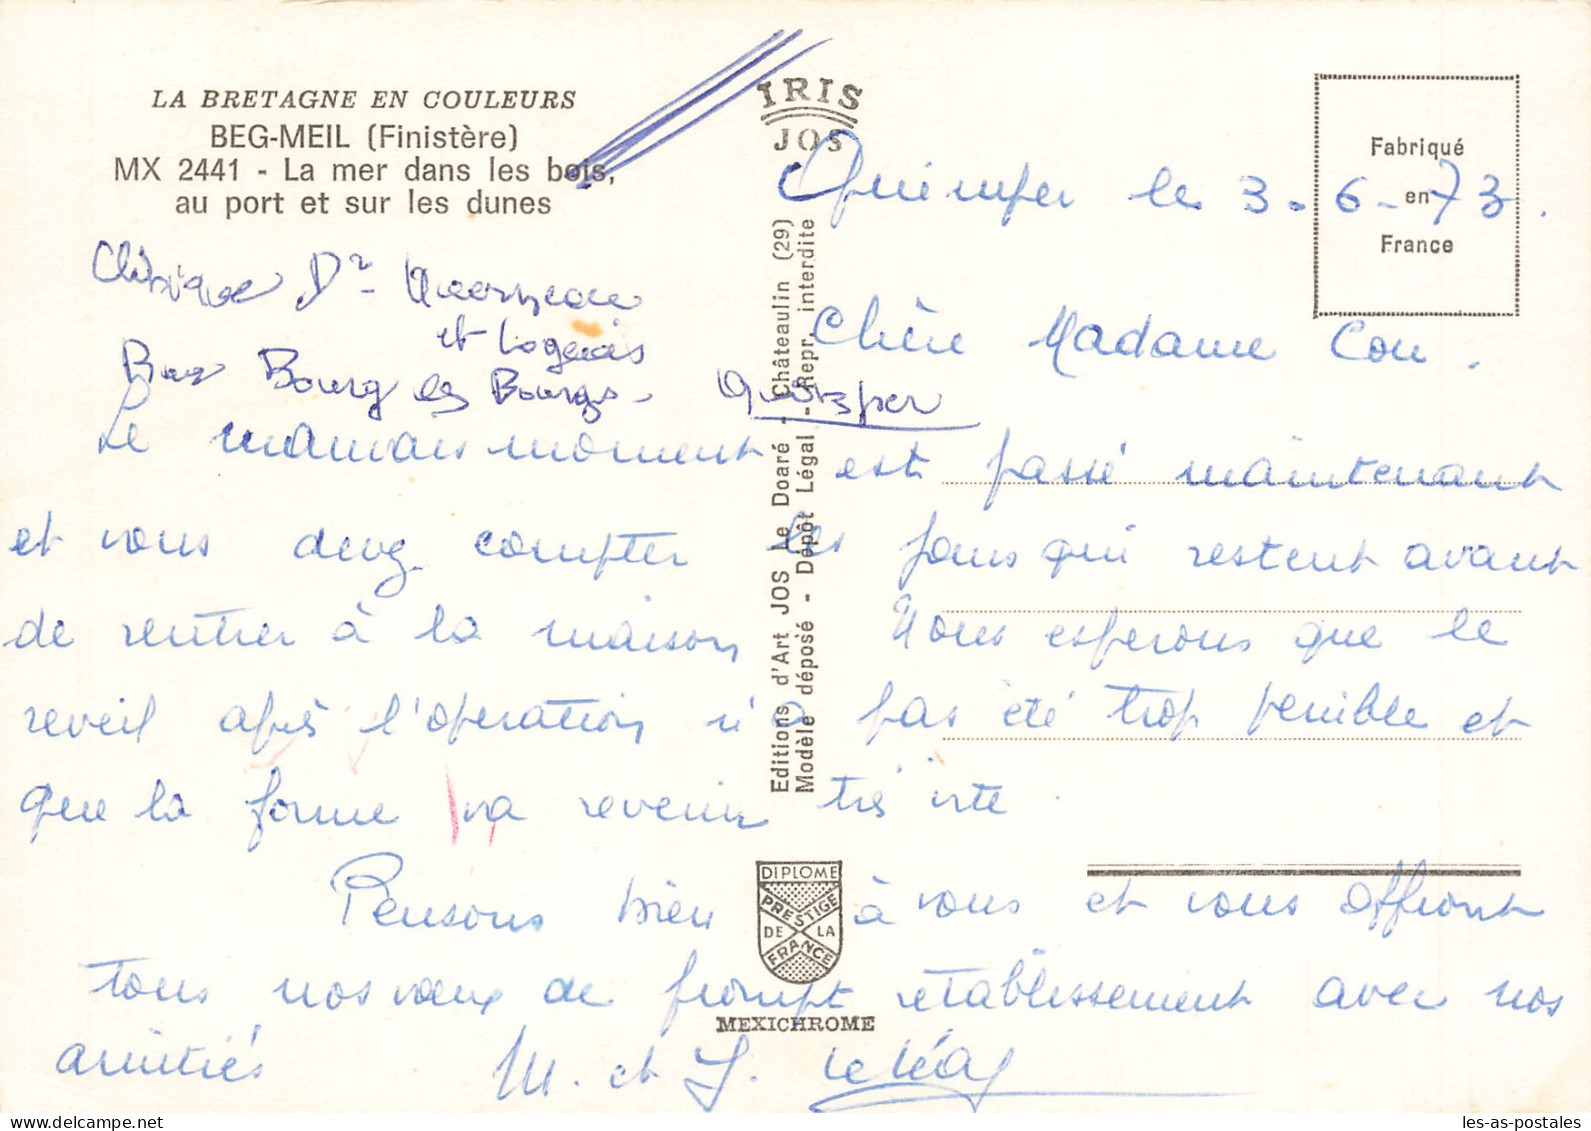 LA BRETAGNE EN COULEURS
BEG-MEIL (Finistère)
MX 2441 - La mer dans les bois,
au port et sur les dunes
IRIS
JOS
Fabriqué
en
France
Editions d'Art JOS Le Doaré - Châteaulin (29)
Modèle déposé - Dépôt Légal - Repr. interdite
Quimper le 3-6-73.
Clinique Dr
et
Bourg les Bourgs - Quimper
Chère Madame Cou.
Le mauvais moment est passé maintenant
et vous devez compter les jours qui restent avant
de rentrer à la maison Nous esperons que le
reveil après l'operation n'a pas été trop penible et
que la forme va revenir très vite.
Pensons bien à vous et vous offront
tous nos voeux de prompt retablissement avec nos
amitiés M. et J.
DIPLOME
PRESTIGE
DE LA
FRANCE
MEXICHROME
les-as-postales